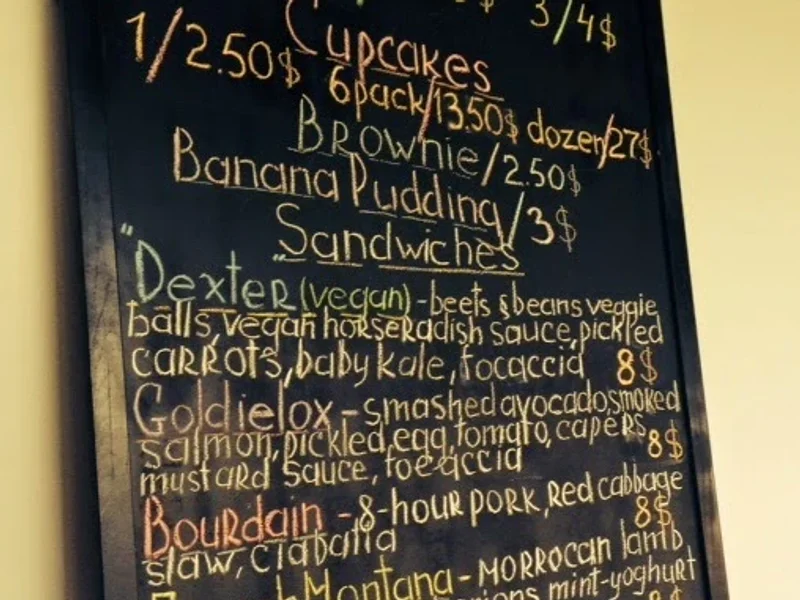 3/4$
1/2.50$ Cupcakes
6pack/13.50$ dozen/27$
Brownie/2.50$
Banana Pudding/3$
Sandwiches
"Dexter" (vegan) - beets & beans veggie
balls, vegan horseradish sauce, pickled
carrots, baby kale, focaccia 8$
Goldielox - smashed avocado, smoked
salmon, pickled, egg, tomato, capers
mustard sauce, focaccia 8$
Bourdain - 8-hour pork, red cabbage
slaw, ciabatta 8$
Montana - morrocan lamb
mint-yoghurt
8$